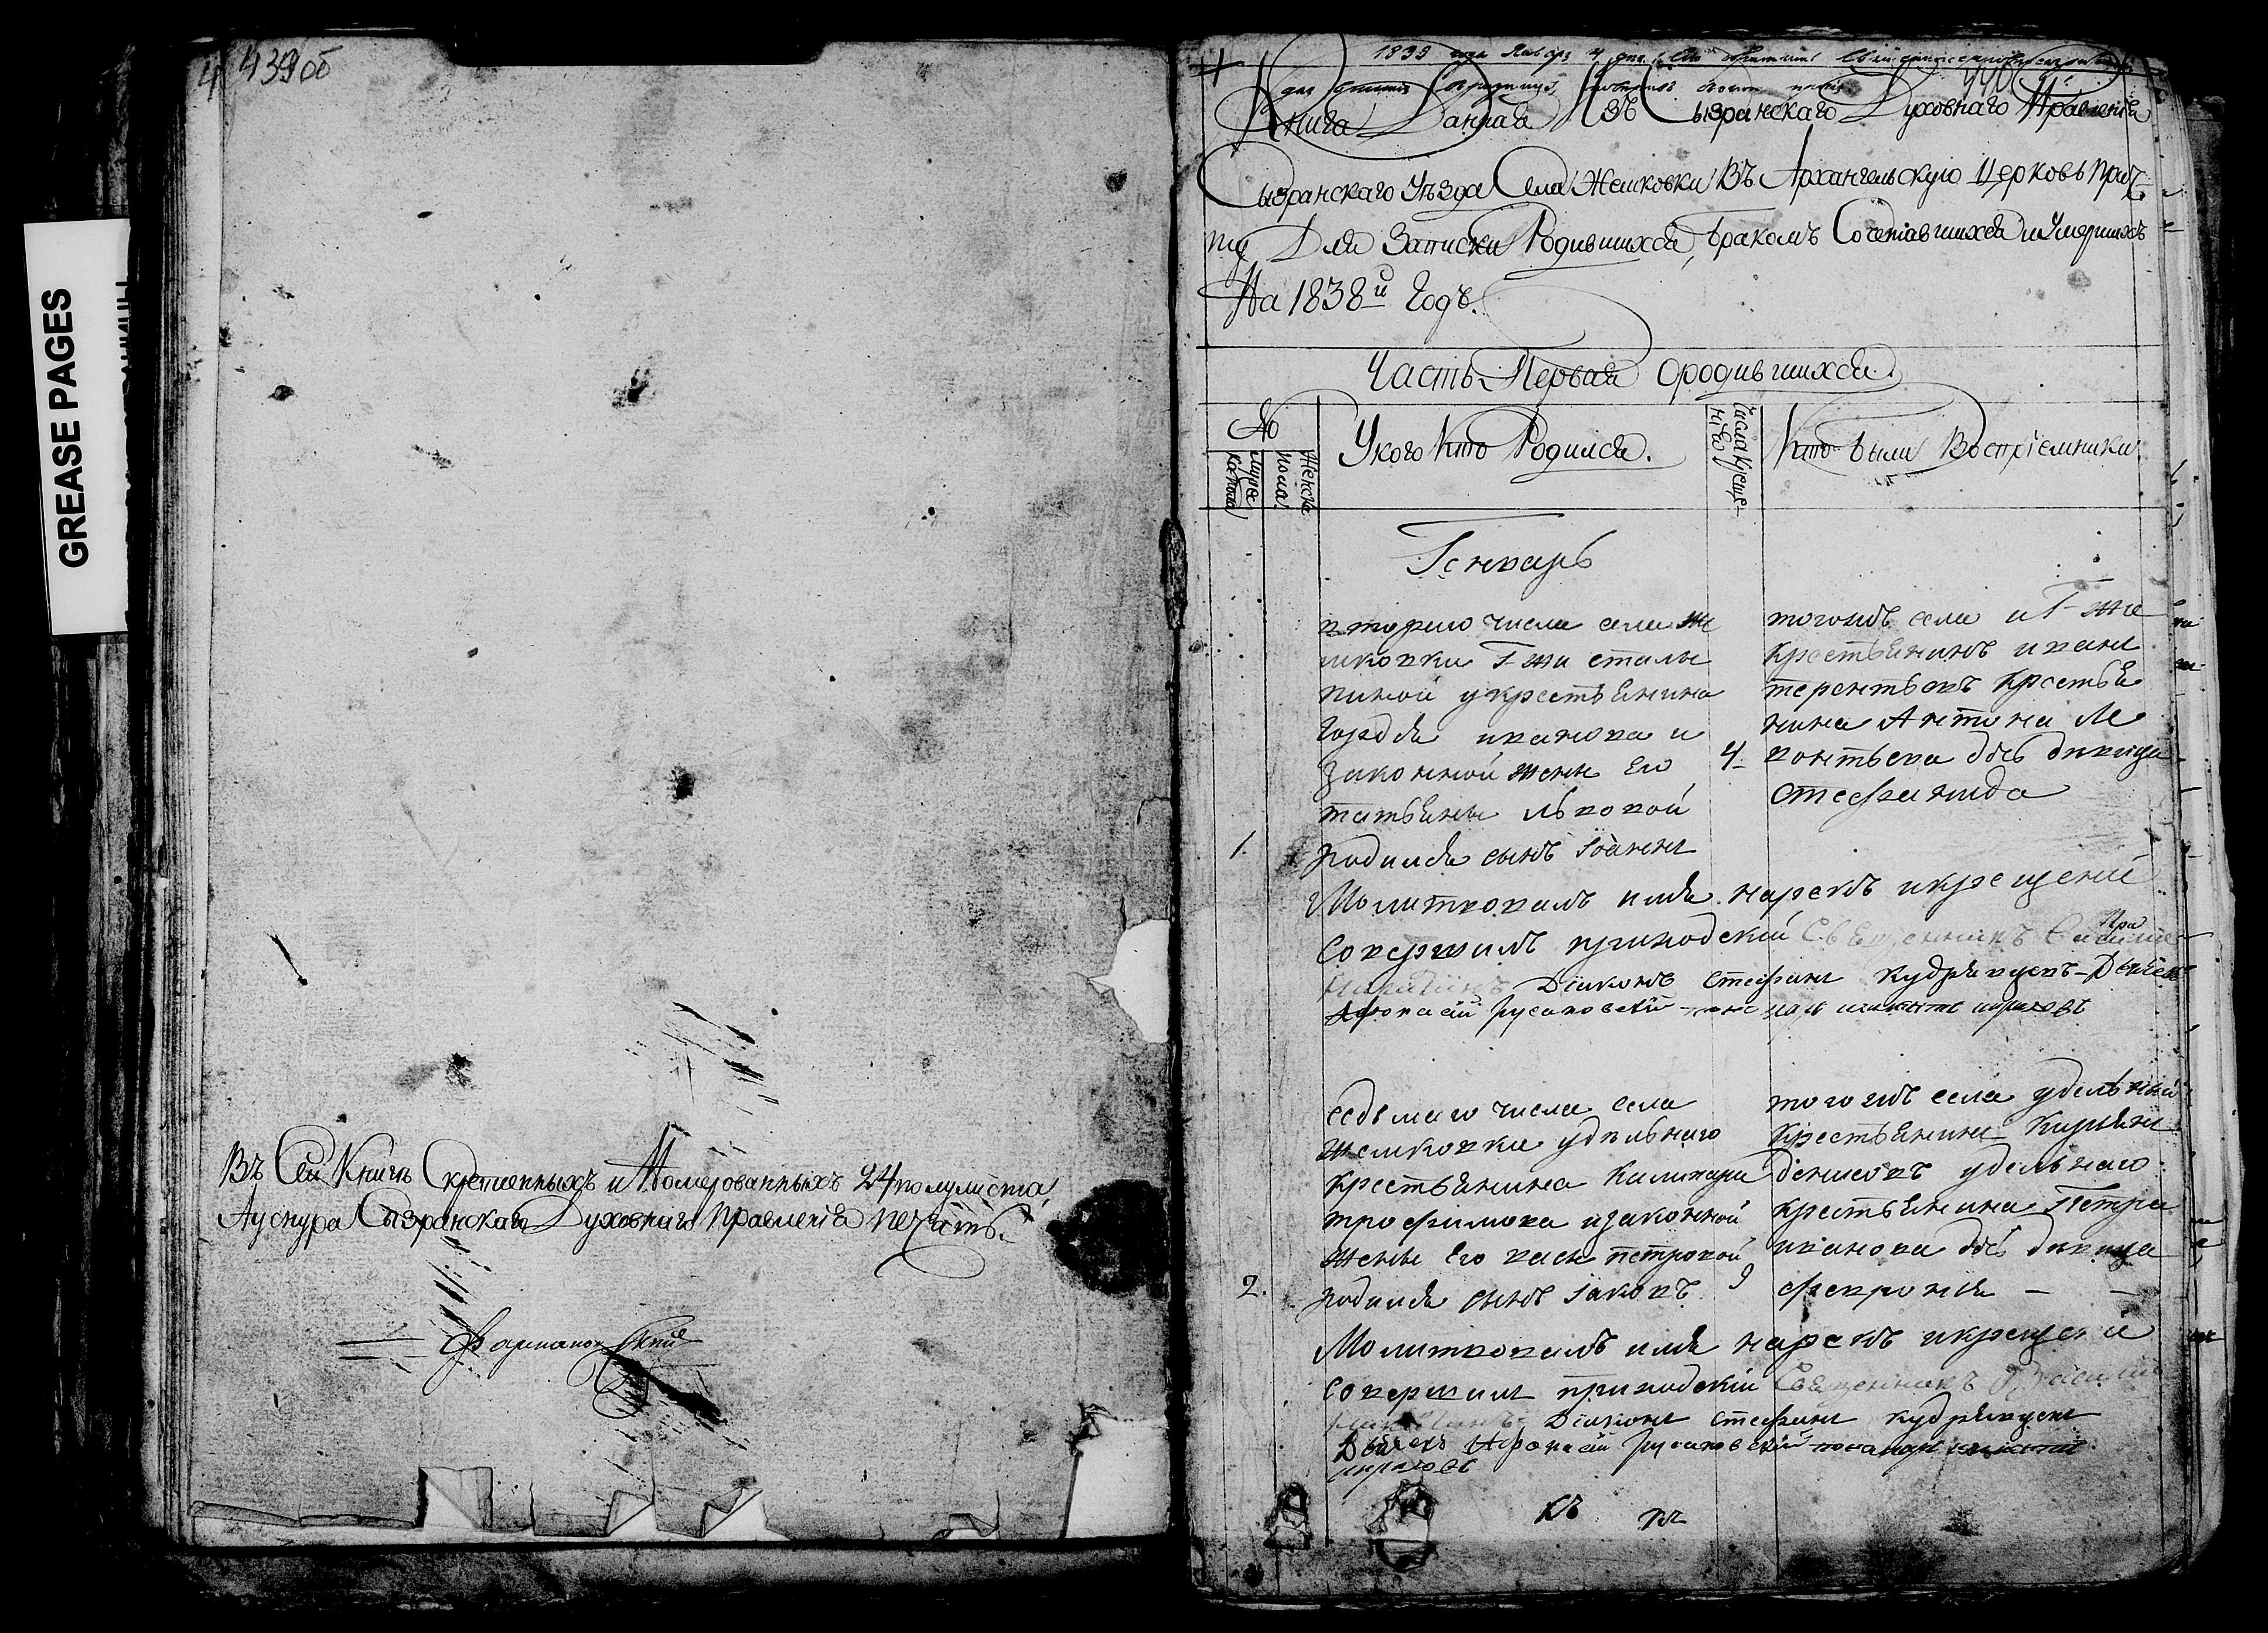 439 об
GREASE PAGES
Въ Сей Книгѣ Скрепленныхъ и Номерованныхъ 24 полулиста
Аускура Сызранскаго Духовнаго Правленія печать.
1839 года
Книга Данная Изъ Сызранскаго Духовнаго Правленія
Сызранскаго Уѣзда Села Жемковки Въ Архангельскую Церковь Прич
ту Для Записки Родившихся, бракомъ Сочетавшихся и Умершихъ
На 1838й Годъ.
Часть Первая ородившихся.
№
Мужеска пола
Женска пола
Укого Кто Родился.
Числа Креще-нiю
Кто были Воспріемники
Генварь
втораго числа села Же
мковки Г жи столы
пиной укрестьянина
Гордѣя иванова и
Законной жены Его
татьяны львовой
1. родился сынъ Іоаннъ
4.
тогожъ села и Г-жи
Крестьянинъ иванъ
терентьевъ Крестья
нина Антона Ле
вонтьева дочь дѣвица
стефанида
Молитвовалъ имя нарекъ икрещеніе
совершилъ приходскій Священникъ Василій
Діаконъ Стефанъ Кудрявцевъ Дьячекъ
Афонасій русановскій
седьмаго числа села
жемковки удѣльнаго
крестьянина
трофимова изаконной
жены Его петровой
2. родился сынъ Іаковъ
9
тогожъ села удѣльный
Крестьянинъ
денисовъ удѣльнаго
крестьянина Петра
иванова дочь дѣвица
феврония
Молитвовалъ имя нарекъ икрещеніе
совершилъ приходскій Священникъ Василій
Діаконъ стефанъ кудрявцевъ
Дьячекъ Афонасій русановскій